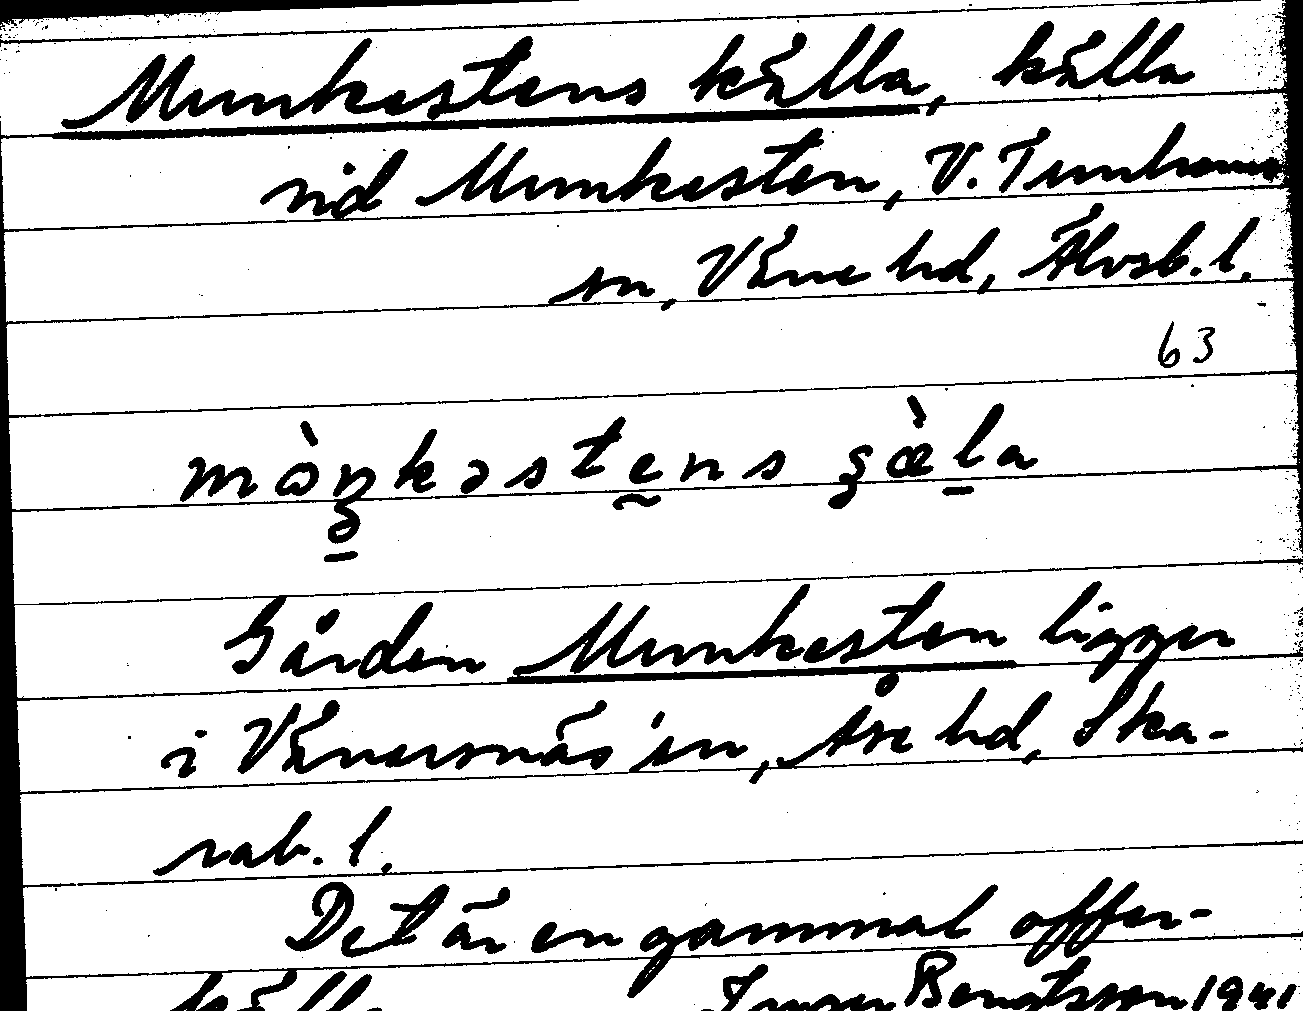 Munkestens källa, källa
vid Munkesten, V. Tunhems
sn, Väne hd, Älvsb. l.
63
mòŋkəstens gæ̀la
Gården Munkesten ligger
i Vänersnäs sn, Åse hd, Ska-
rab. l.
Det är en gammal offer-
källa Bengtsson 1941